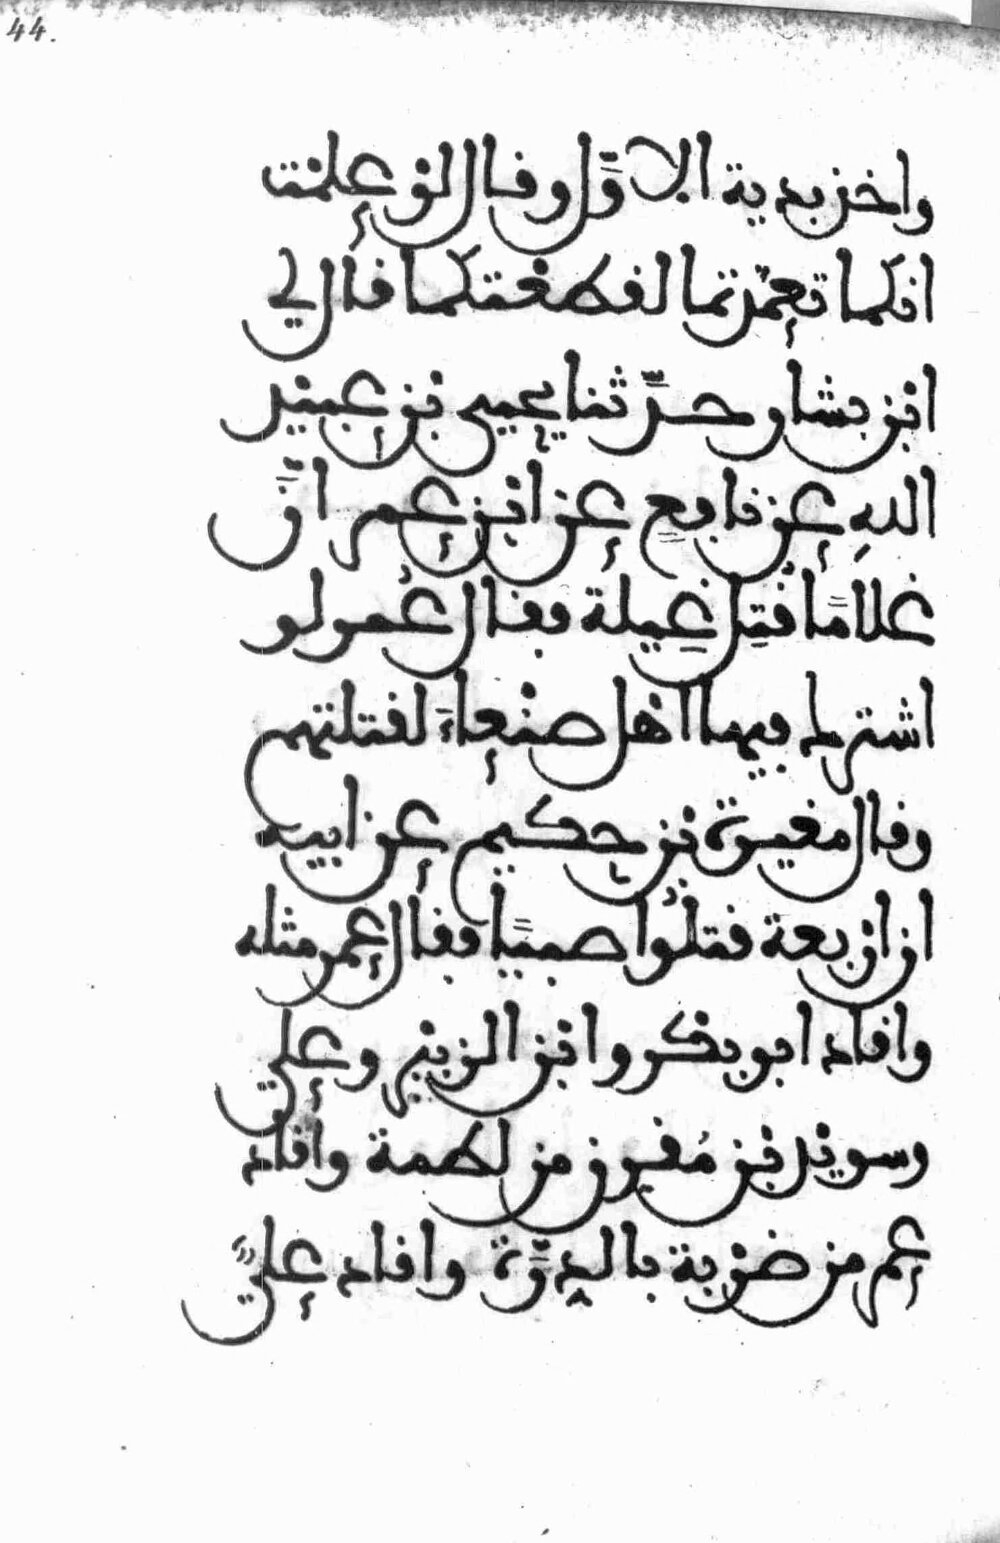 44.
واخذ بدية الاوّل وقال لوْ علمْت
انكما تعمّدْتما لقطعْتكما قال لي
ابْن بشار حدّثنا يحيى بْن عبيْد
اللهِ عن نافع عن ابْن عمر انّ
غلامًا قُتِل غِيلة فقال عُمر لو
اشترك فيها اهْل صنْعاءَ لقتلتهم
وقال مغيرة بْن حكيم عن ابيه
ان ارْبعة قتلُوا صبيًا فقال عمر مثله
واقاد ابو بكر وابْن الزبيْر وعلي
وسويْد بْن مُقرن من لطمة واقاد
عمر من ضرْبة بالدِرّة واقاد عليٌّ